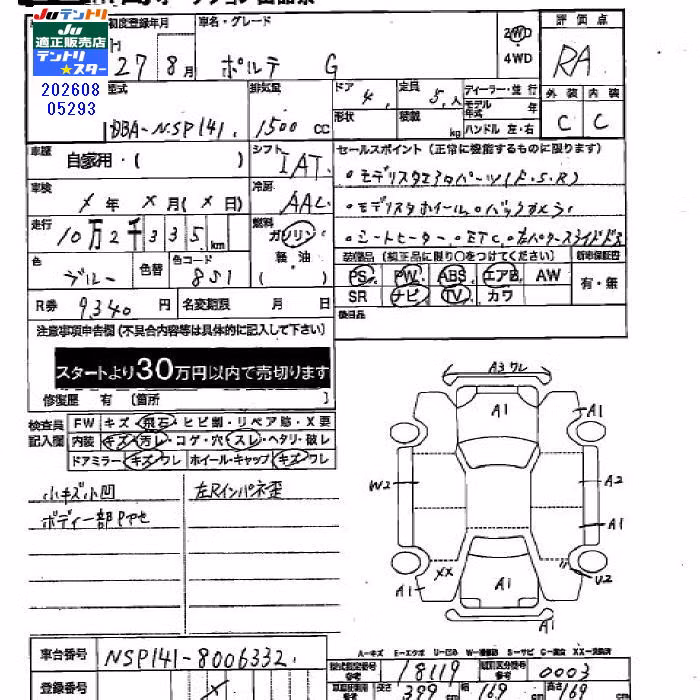 Juテントリ
JU
適正販売店
テントリ
★スター
202608
05293
初度登録年月
車名・グレード
2WD
4WD
評価点
H 27 8 月
ポルテ G
RA
外装 内装
C C
型式
DBA-NSP141.
排気量
1500 CC
ドア 4.
定員 5.人
ディーラー・並行
モデル年式 年
形状
積載 kg
ハンドル 左・右
車歴
自家用・( )
シフト
IAT.
セールスポイント (正常に機能するものに限ります)
・モデリスタエアロパーツ(F.S.R)
車検
年 月( 日)
冷房
AAC
・モデリスタホイール.・バックカメラ.
走行
10万2千335. km
燃料
ガソリン
軽油
( )
・シートヒーター.・ETC.・左パワースライドドア
色
ブルー
色替
色コード
8S1
装備品 (純正品に限り○をつけてください)
新車保証書
PS PW ABS エアB AW
SR ナビ TV カワ
有・無
R券 9340 円 名変期限 月 日
後日品
注意事項申告欄 (不具合内容等は具体的に記入して下さい)
スタートより30万円以内で売切ります
修復歴 有 〔箇所 〕
検査員
記入欄
FW キズ・飛石・ヒビ割・リペア跡・X要
内装 キズ・汚レ・コゲ・穴・スレ・ヘタリ・破レ
ドアミラー キズ・ワレ ホイール・キャップ キズ・ワレ
小キズ小凹
左Rインパネ歪
ボディー部Pアセ
A3 ワレ
A1
A1
W2
A2
A1
XX
A1
A1
U2
A1
A-キズ E-エクボ U-凹み W-補修跡 S-サビ C-腐食 XX-交換済
車台番号 NSP141-8006332.
型式指定番号 参考 18119
類別区分番号 参考 0003
登録番号
長さ 399 cm 幅 169 cm 高さ 169 cm